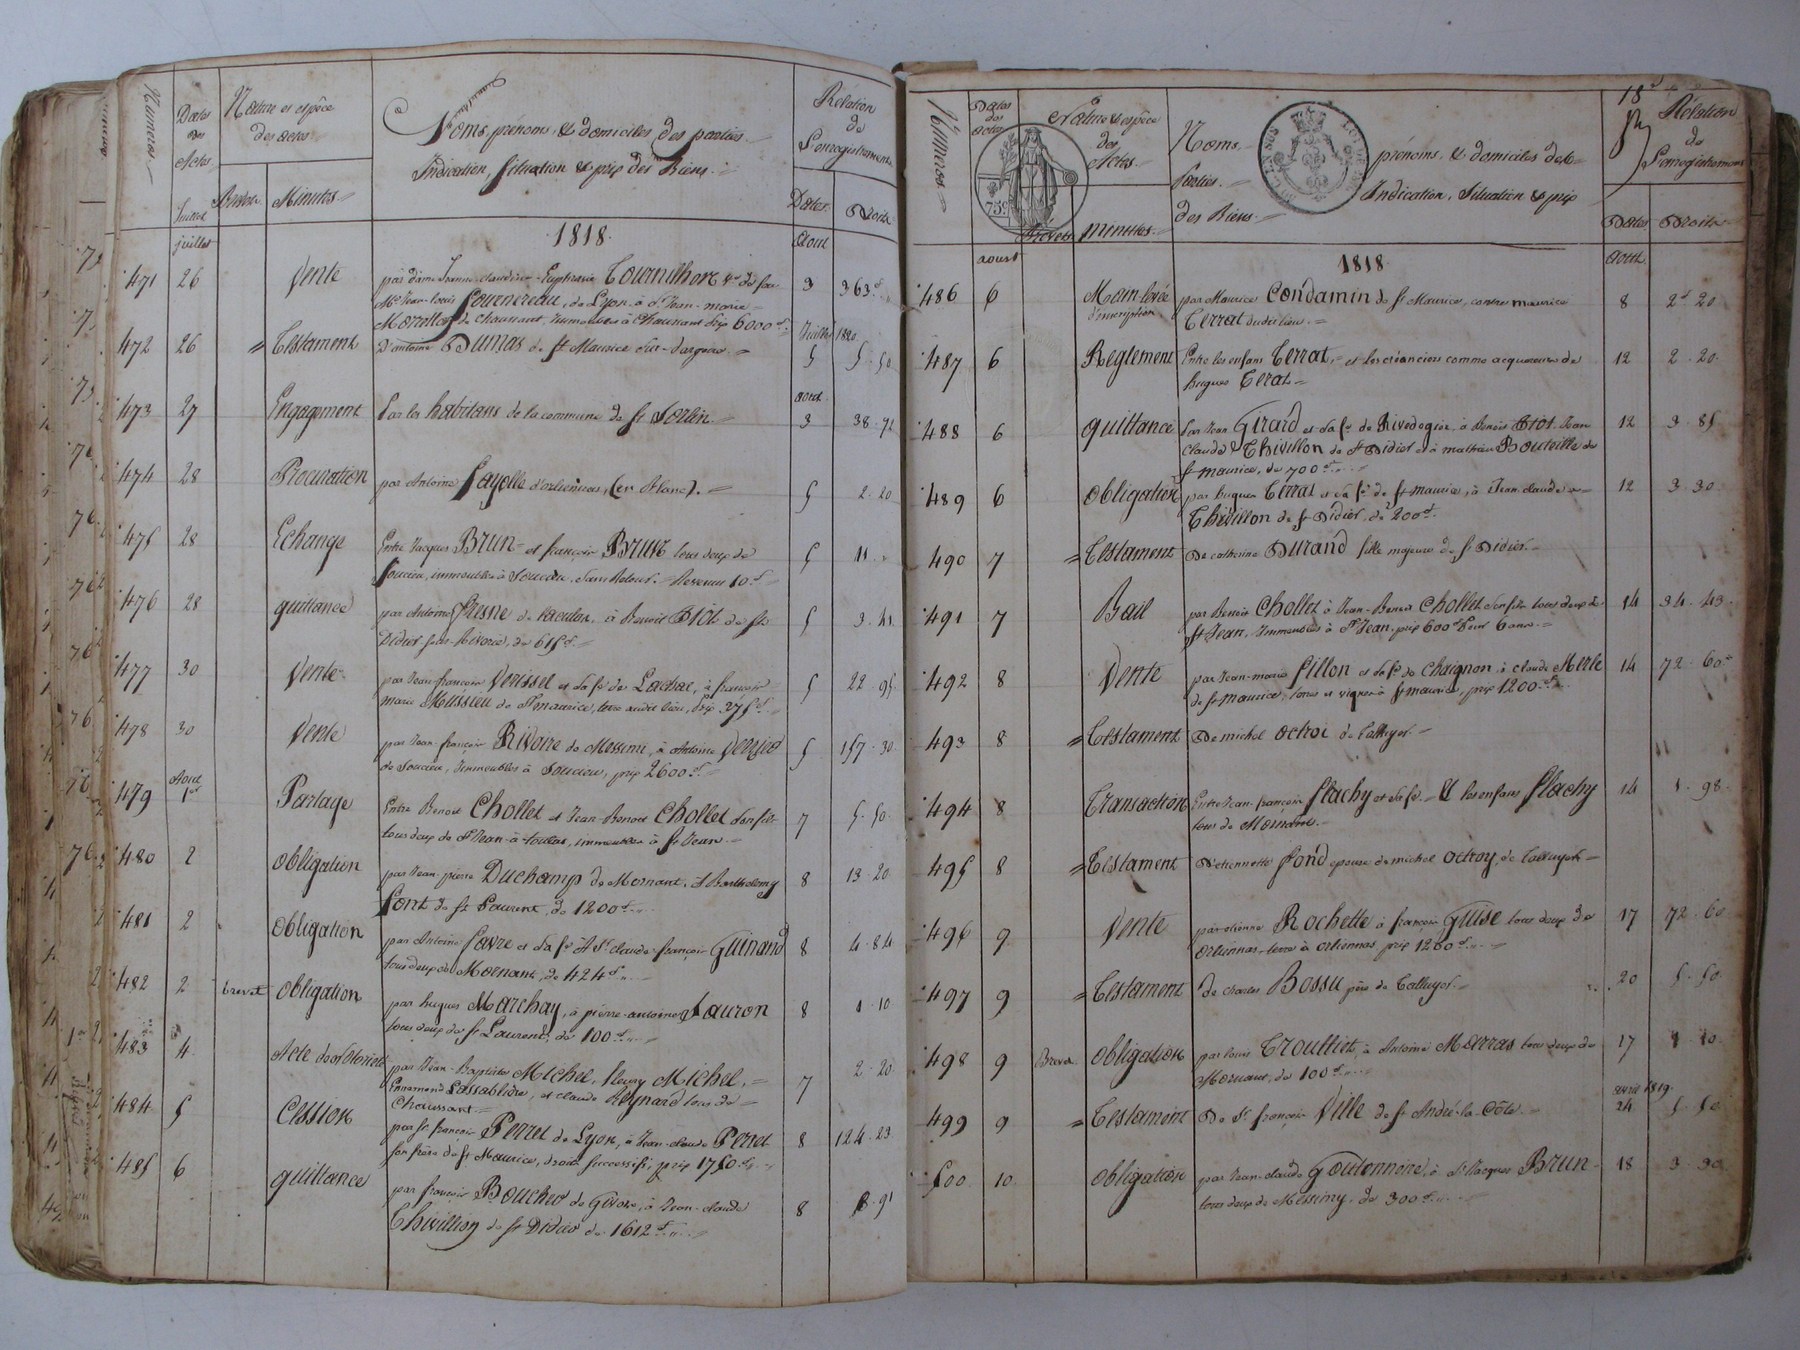 Numeros
Dates des Actes
Nature et espèce des actes
Noms, prénoms, & domiciles des parties
Indication, Situation & prix des Biens
Relation de l'enregistrement
Brevets Minutes Dates Droits
juillet 1818 Aout
471 26 Vente par dame Jeanne claudine Euphrasie Tournilhon Ve de feu 3 363
Mr Jean-louis fournereau, de Lyon à Sr Jean-marie
de Chaussant, Immeubles à Chaussant prix 6000
Juillet 1820
472 26 Testament D'antoine Dumas de St Maurice sur-dargoire 5 5.50
aout
473 27 Engagement Par les habitans de la commune de St Sorlin 3 38.72
474 28 Procuration par Antoine fayolle d'orliennas, (en Blanc) 5 2.20
475 28 Echange Entre Jacques Brun et françois Brun tous deux de 5 11
Soucieu, immeubles à Soucieu, Sans Retour. Revenu 10
476 28 quittance par Antoine fresne de à Benoit Stot de St 5 3.41
Didier sous-Riverie, de 615
477 30 Vente par Jean-françois Verissel et sa fe de à françois 5 22.95
marie Mussieu de St maurice, terre audit lieu, prix 375
478 30 Vente par Jean-françois Rivoire de Messimi, à Antoine 5 157.30
de Soucieu, Immeubles à Soucieu, prix 2600
Aout
479 1er Partage Entre Benoit Chollet et Jean-Benoit Chollet son fils 7 5.50
tous deux de St Jean-à-toulas, immeubles à St Jean
480 2 obligation par Jean-pierre Duchamp de Mornant, à Barthelemy 8 13.20
font de St Laurent, de 1200
481 2 obligation par Antoine favre et sa fe à Sr claude-françois Guinand 8 4.84
tous deux de Mornant, de 424
482 2 brevet obligation par hugues Marchay, à pierre-antoine Lauron 8 1.10
tous deux de St Laurent, de 100
483 4 Acte de Notorieté par Jean-Baptiste Michel, fleury Michel, 7 2.20
Ennemond Lassablière, et claude Reynard tous de
Chaussant
484 5 Cession par Sr françois Perret de Lyon, à Jean-claude Perret 8 124.23
son frère de St Maurice, droits Successifs, prix 1750
485 6 quittance par françois Boucher de Givors, à Jean-claude 8 8.91
Thivillion de St Didier de 1612
Numeros
Dates des Actes
Nature & espèce des Actes
Noms, prénoms & domiciles des
Parties. Indication, Situation & prix
des Biens
Relation de l'enregistrement
75c
Brevets Minutes Dates Droits
aoust 1818 Aout
486 6 Mainlevée par Maurice Condamin de St Maurice, contre maurice 8 2.20
d'inscription Terrat dudit lieu
487 6 Reglement Entre les enfans Terrat, et les créanciers comme acquereurs de 12 2.20
hugues Terrat
488 6 quittance Par Jean Girard et sa fe de Rivedegier à Benoit Stot Jean 12 3.85
claude Thivillon de St Didier et à mathieu Bouteille de
St maurice, de 700
489 6 obligation par hugues Terrat et sa fe de St maurice, à Jean-claude 12 3.30
Thivillon de St Didier, de 200
490 7 Testament De catherine Durand fille majeure de St Didier
491 7 Bail par Benoit Chollet à Jean-Benoit Chollet son fils tous deux de 14 34.43
St Jean, Immeubles à St Jean, prix 600 pour 6 ans
492 8 Vente par Jean-marie fillon et sa fe de Chaignon à claude Merle 14 72.60
de St maurice, terres et vignes à St maurice, prix 1200
493 8 Testament De michel octroi de Talluyer
494 8 Transaction Entre Jean-françois flachy et sa fe & les enfans flachy 14 1.98
tous de Mornant
495 8 Testament D'etiennette fond epouse de michel octroy, de Talluyer
496 9 Vente par etienne Rochette à françois Guise tous deux de 17 72.60
Orliennas, terre à orliennas, prix 1200
497 9 Testament de charles Bossu père de Talluyer 20 5.50
498 9 Brevet obligation par louis Troulliet, à Antoine Marras tous deux de 17 1.10
Mornant, de 100
1819
499 9 Testament De Sr françois Ville de St André-la-Côte 24 5.50
500 10 obligation par Jean-claude Goutonnère, à Sr Jacques Brun 18 3.30
tous deux de Messimy, de 300